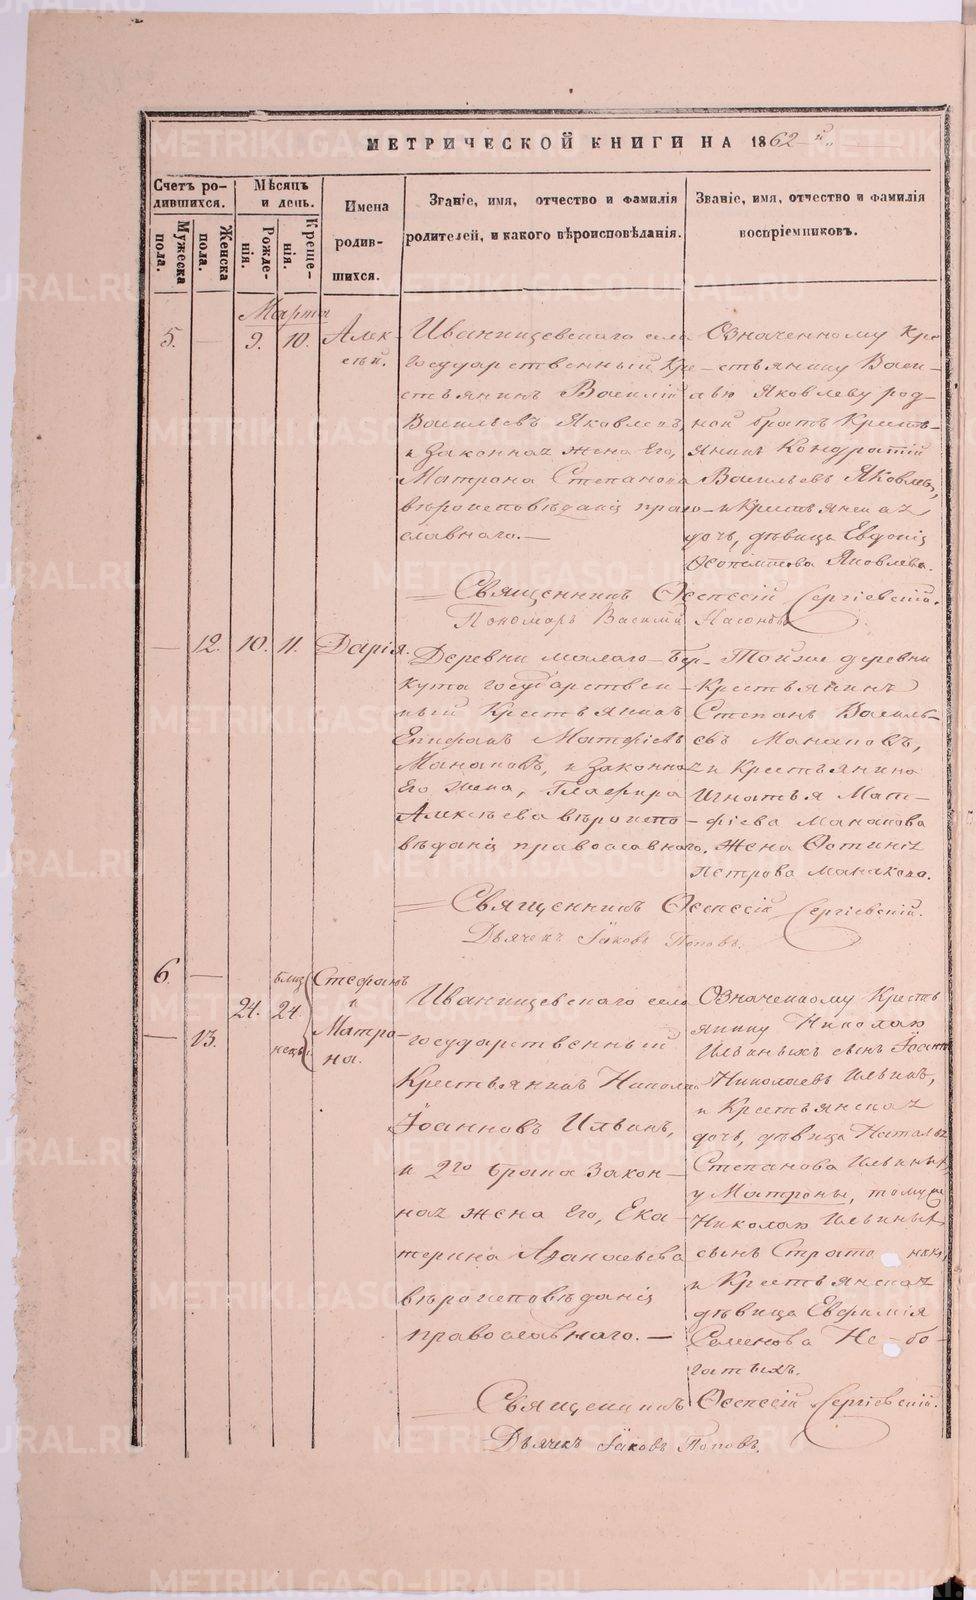 МЕТРИЧЕСКОЙ КНИГИ НА 1862 й
Счетъ ро-
дившихся.
Мѣсяцъ
и день.
Имена
родив-
шихся.
Званіе, имя, отчество и фамилія
родителей, и какого вѣроисповѣданія.
Званіе, имя, отчество и фамилія
воспріемниковъ.
Мужеска
пола.
Женска
пола.
Рожде-
нія.
Креще-
нія.
Марта
5. — 9. 10.
Алек-
сѣй.
Иванищевскаго села
государственный Кре-
стьянинъ Василій
Васильевъ Яковлевъ,
и Законная жена Его,
Матрона Степанова
вѣроисповѣданія право-
славнаго. —
Означенному Кре-
стьянину Васи-
лью Яковлеву род-
ной братъ Кресть-
янинъ Кондратій
Васильевъ Яковлевъ,
и Крестьянская
дочь, дѣвица Евдокія
Яковлева.
Священникъ Сергіевскій.
Пономарь Василій
— 12. 10. 11. Дарія.
Деревни малаго Бер-
кута государствен-
ный Крестьянинъ
Епифанъ Матфіевъ
Манаковъ, и Законная
Его жена, Глафира
Алексѣева вѣроиспо-
вѣданія православнаго.
Тойже деревни
Крестьянинъ
Степанъ Василь-
евъ Манаковъ,
и Крестьянина
Игнатья Мат-
фіева Манакова
жена Фотинія
Петрова Манакова.
Священникъ Сергіевскій.
Дьячекъ Іаковъ Поповъ.
6. —
— 13.
24. 24.
близ
нецы
Стефанъ
и
Матро-
на.
Иванищевскаго села
государственный
Крестьянинъ Николай
Іоанновъ Ильинъ,
и 2го брака Закон-
ная жена Его, Ека-
терина Аѳанасьева
вѣроисповѣданія
православнаго. —
Означенному Кресть
янину Николаю
Ильиныхъ сынъ Іоаннъ
Николаевъ Ильинъ,
и Крестьянская
дочь, дѣвица Наталья
Степанова Ильиныхъ,
у Матроны, томуже
Николаю Ильиныхъ
сынъ
и Крестьянская
дѣвица Евфимія
Семенова Не-бо-
гатыхъ.
Священникъ Сергіевскій.
Дьячекъ Іаковъ Поповъ.
METRIKI.GASO-URAL.RU